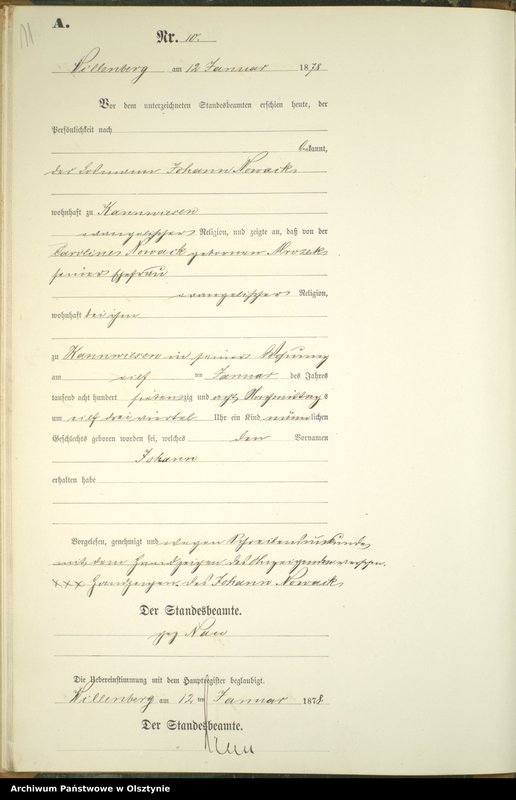 11
A.
Nr. 10.
Willenberg am 12 Januar 1878
Vor dem unterzeichneten Standesbeamten erschien heute, der
Persönlichkeit nach
bekannt,
der Johann Nowack
wohnhaft zu Kannwiesen
evangelischer Religion, und zeigte an, daß von der
Caroline Nowack geborenen Mrozek
seiner Ehefrau
evangelischer Religion,
wohnhaft bei ihm
zu Kannwiesen in seiner Wohnung
am eilf ten Januar des Jahres
tausend acht hundert siebenzig und acht Nachmittags
um eilf drei viertel Uhr ein Kind männlichen
Geschlechts geboren worden sei, welches den Vornamen
Johann
erhalten habe
Vorgelesen, genehmigt und wegen Schreibensunkunde
mit dem Handzeichen des Anzeigenden versehen.
XXX Handzeichen des Johann Nowack
Der Standesbeamte.
gez Nau
Die Uebereinstimmung mit dem Hauptregister beglaubigt.
Willenberg am 12 ten Januar 1878
Der Standesbeamte.
Nau
Archiwum Państwowe w Olsztynie